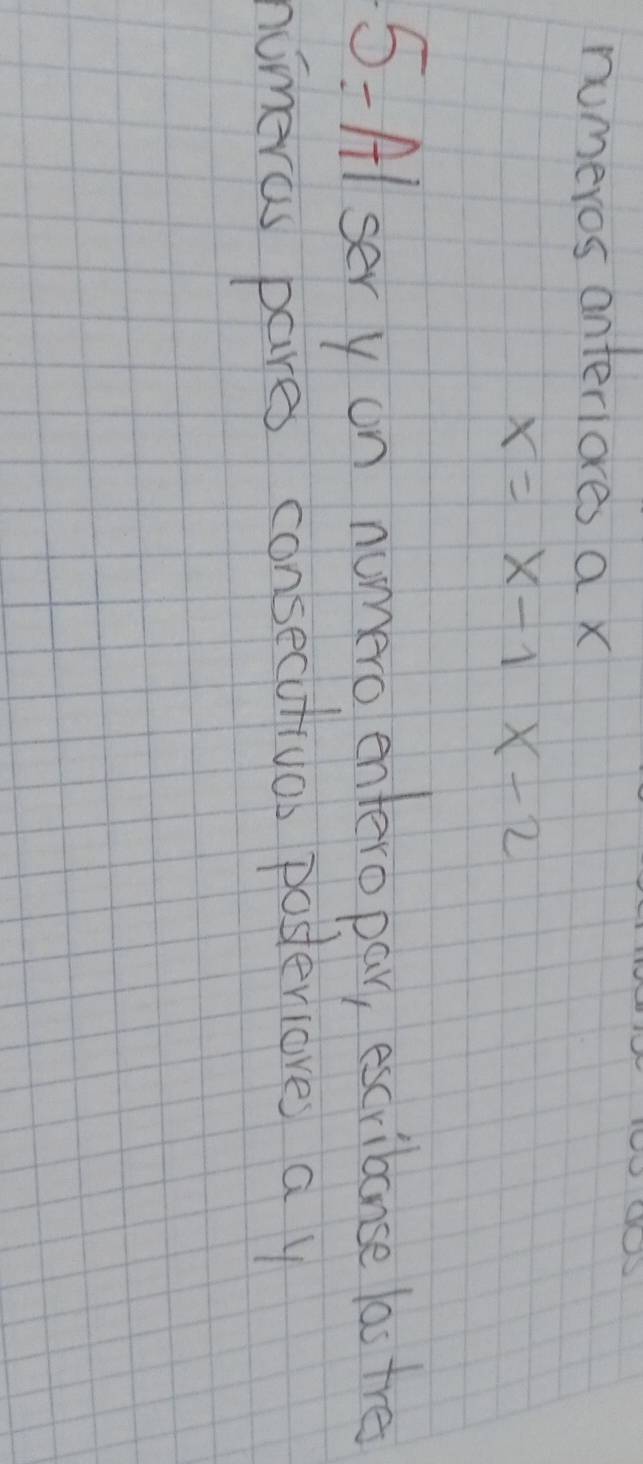 numeros anteriores a x
x = x - 1 x - 2
5.- Al ser y un numero entero par, escribanse los tres
números pares consecutivos posteriores a y